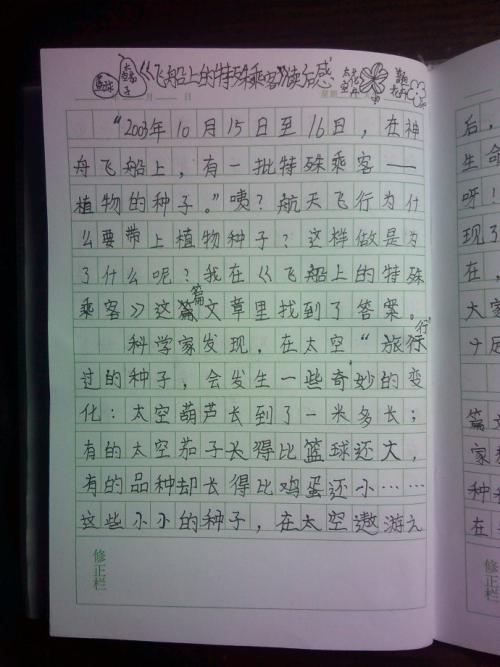 《飞船上的特殊乘客》读后感
年 月 日
"2003年10月15日至16日，在神
舟飞船上，有一批特殊乘客——
植物的种子。"咦？航天飞行为什
么要带上植物种子？这样做是为
了什么呢？我在《飞船上的特殊
乘客》这篇文章里找到了答案。
科学家发现，在太空"旅行
过的种子，会发生一些奇妙的变
化：太空葫芦长到了一米多长；
有的太空茄子长得比篮球还大，
有的品种却长得比鸡蛋还小……
这些小小的种子，在太空遨游之
修正栏
后，
生命
呀！
现了
在，
大家
篇文
家
种
在
修正栏